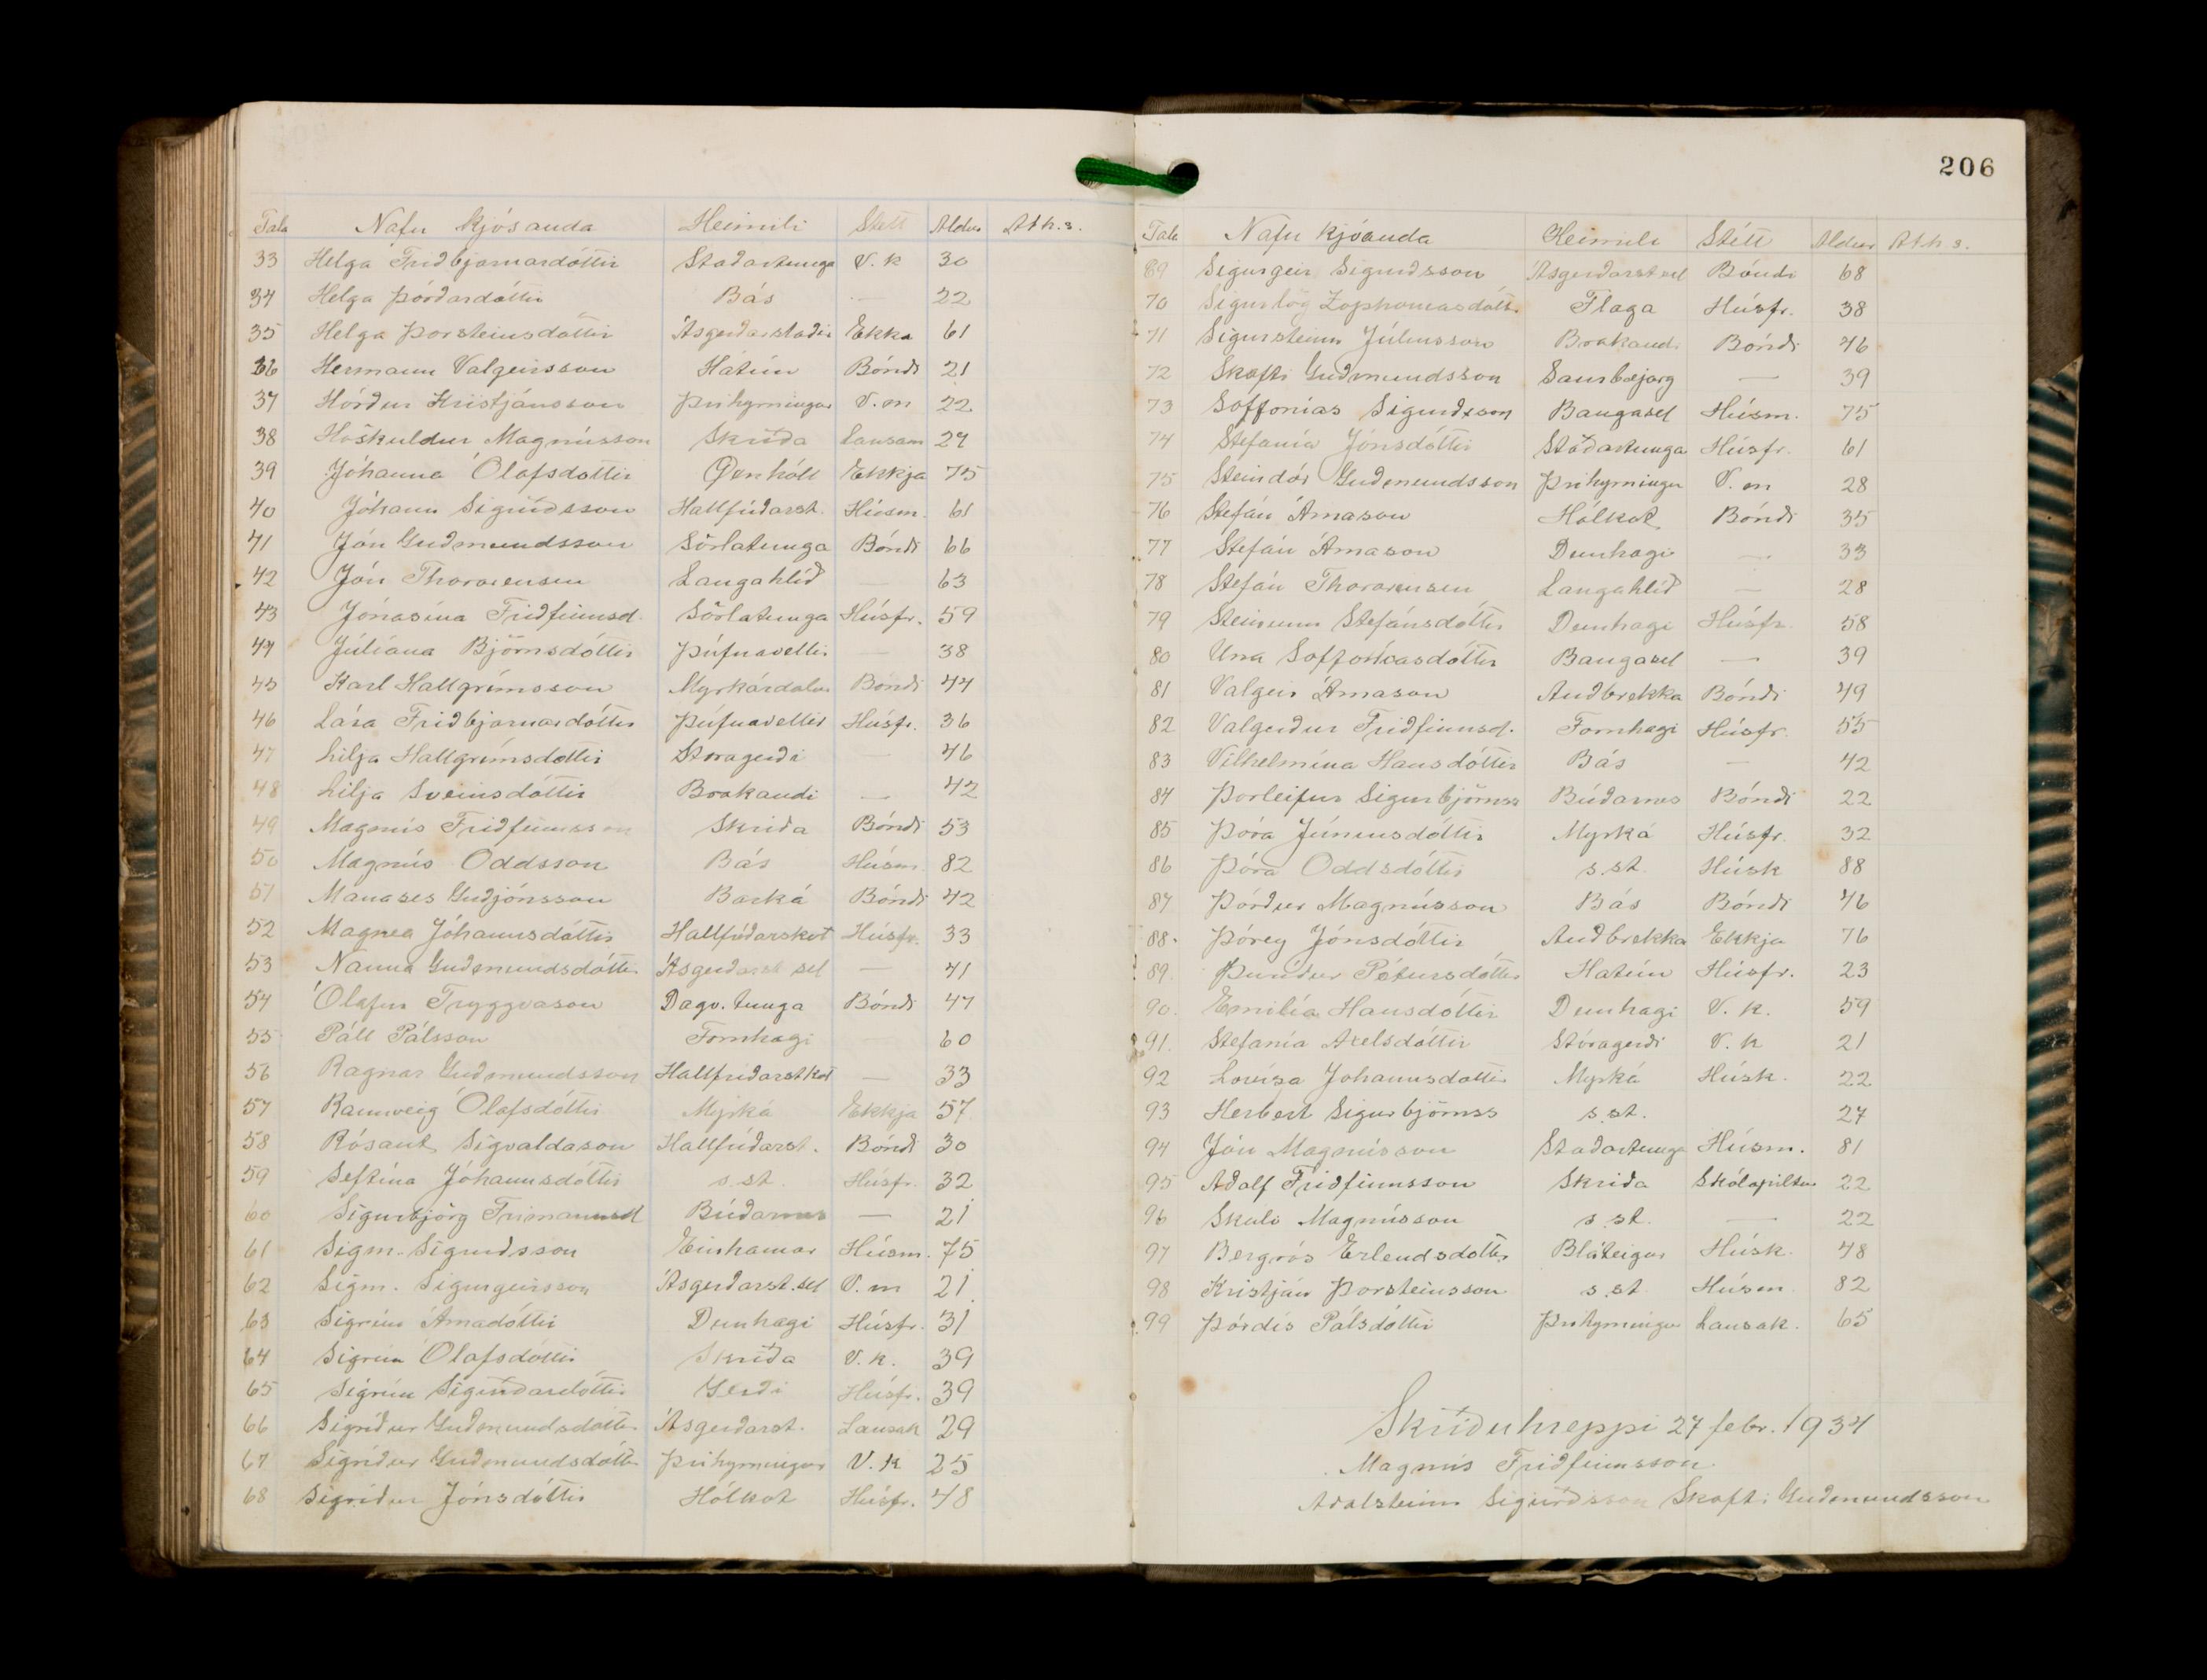 Tala Nafn kjósanda Heimili Stétt Aldur Ath.s.
33 Helga Friðbjarnardóttir Staðartunga V.k 30
34 Helga Þórðardóttir Bás — 22
35 Helga Þorsteinsdóttir Ásgerðarstaðir Ekkja 61
36 Hermann Valgeirsson Hátún Bóndi 21
37 Hörður Kristjánsson Þríhyrningur V.m 22
38 Höskuldur Magnússon Skriða Lausam 27
39 Jóhanna Ólafsdóttir Öxnhóll Ekkja 75
40 Jóhann Sigurðsson Hallfríðarst. Húsm. 61
41 Jón Guðmundsson Sörlatunga Bóndi 66
42 Jón Thorarensen Langahlíð — 63
43 Jónasína Friðfinnsd. Sörlatunga Húsfr. 59
44 Júlíana Björnsdóttir Þúfnavellir — 38
45 Karl Hallgrímsson Myrkárdalur Bóndi 44
46 Lára Friðbjarnardóttir Þúfnavellir Húsfr. 36
47 Lilja Hallgrímsdóttir Stóragerði — 46
48 Lilja Sveinsdóttir Brakandi — 42
49 Magnús Friðfinnsson Skriða Bóndi 53
50 Magnús Oddsson Bás Húsm. 82
51 Manases Guðjónsson Barká Bóndi 42
52 Magnea Jóhannsdóttir Hallfríðarskot Húsfr. 33
53 Nanna Guðmundsdóttir Ásgerðarst sel — 41
54 Ólafur Tryggvason Dagv.tunga Bóndi 47
55 Páll Pálsson Fornhagi — 60
56 Ragnar Guðmundsson Hallfríðarstkot — 33
57 Rannveig Ólafsdóttir Myrká Ekkja 57
58 Rósant Sigvaldason Hallfríðarst. Bóndi 30
59 Seftína Jóhannsdóttir s.st. Húsfr. 32
60 Sigurbjörg Frímannsd Búðarnes — 21
61 Sigm. Sigurðsson Einhamar Húsm. 75
62 Sigm. Sigurgeirsson Ásgerðarst.sel V.m 21
63 Sigrún Árnadóttir Dunhagi Húsfr. 31
64 Sigrún Ólafsdóttir Skriða V.k. 39
65 Sigrún Sigurðardóttir Gerði Húsfr. 39
66 Sigríður Guðmundsdóttir Ásgerðarst. Lausak 29
67 Sigríður Guðmundsdóttir Þríhyrningur V.k 25
68 Sigríður Jónsdóttir Hólkot Húsfr. 48
206
Tala Nafn kjósanda Heimili Stétt Aldur Ath s.
69 Sigurgeir Sigurðsson Ásgerðarst sel Bóndi 68
70 Sigurlög Zophoniasdótt. Flaga Húsfr. 38
71 Sigursteinn Júlíusson Brakandi Bóndi 46
72 Skafti Guðmundsson Saurbæjarg — 39
73 Soffonías Sigurðsson Baugasel Húsm. 75
74 Stefanía Jónsdóttir Staðartunga Húsfr. 61
75 Steindór Guðmundsson Þríhyrningur V.m 28
76 Stefán Árnason Hólkot Bóndi 35
77 Stefán Árnason Dunhagi — 33
78 Stefán Thorarensen Langahlíð — 28
79 Steinunn Stefánsdóttir Dunhagi Húsfr. 58
80 Una Soffoníasdóttir Baugasel — 39
81 Valgeir Árnason Auðbrekka Bóndi 49
82 Valgerður Friðfinnsd. Fornhagi Húsfr. 55
83 Vilhelmína Hansdóttir Bás — 42
84 Þorleifur Sigurbjörnss Búðarnes Bóndi 22
85 Þóra Júníusdóttir Myrká Húsfr. 32
86 Þóra Oddsdóttir s.st. Húsk 88
87 Þórður Magnússon Bás Bóndi 46
88. Þórey Jónsdóttir Auðbrekka Ekkja 76
89. Þuríður Pétursdóttir Hatún Húsfr. 23
90. Emilía Hansdóttir Dunhagi V.k. 59
91. Stefanía Axelsdóttir Stóragerði V.k 21
92 Lovísa Jóhannsdóttir Myrká Húsk. 22
93 Herbert Sigurbjörnss s.st. 27
94 Jón Magnússon Staðartunga Húsm. 81
95 Aðalf Friðfinnsson Skriða Skólapiltur 22
96 Skuli Magnússon s.st. — 22
97 Bergrós Erlendsdóttir Bláteigur Húsk. 48
98 Kristján Þorsteinsson s.st Húsm. 82
99 Þórdís Pálsdóttir Þríhyrningur Lausak. 65
Skriðuhreppi 27 febr. 1934
Magnús Friðfinnsson.
Aðalsteinn Sigurðsson Skafti Guðmundsson